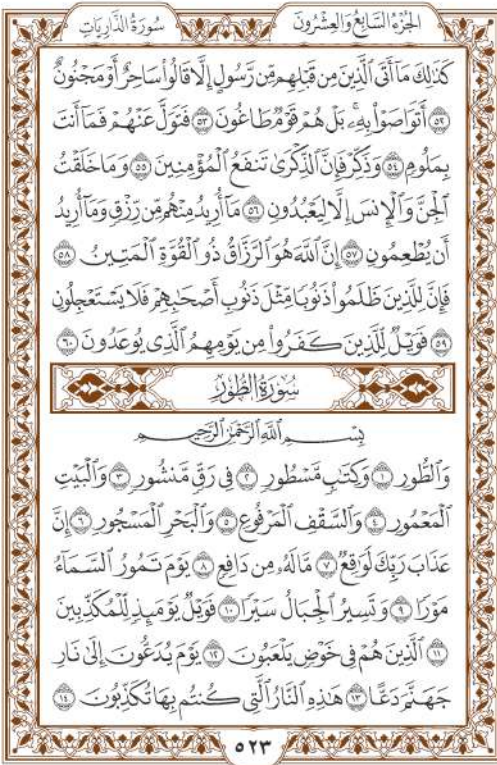 الجُزْءُ السَّابِعُ وَالعِشْرُونَ سُورَةُ الذَّارِيَاتِ
كَذَٰلِكَ مَآ أَتَى ٱلَّذِينَ مِن قَبْلِهِم مِّن رَّسُولٍ إِلَّا قَالُوا۟ سَاحِرٌ أَوْ مَجْنُونٌ
۝٥٢ أَتَوَاصَوْا۟ بِهِۦ ۚ بَلْ هُمْ قَوْمٌ طَاغُونَ ۝٥٣ فَتَوَلَّ عَنْهُمْ فَمَآ أَنتَ
بِمَلُومٍ ۝٥٤ وَذَكِّرْ فَإِنَّ ٱلذِّكْرَىٰ تَنفَعُ ٱلْمُؤْمِنِينَ ۝٥٥ وَمَا خَلَقْتُ
ٱلْجِنَّ وَٱلْإِنسَ إِلَّا لِيَعْبُدُونِ ۝٥٦ مَآ أُرِيدُ مِنْهُم مِّن رِّزْقٍ وَمَآ أُرِيدُ
أَن يُطْعِمُونِ ۝٥٧ إِنَّ ٱللَّهَ هُوَ ٱلرَّزَّاقُ ذُو ٱلْقُوَّةِ ٱلْمَتِينُ ۝٥٨
فَإِنَّ لِلَّذِينَ ظَلَمُوا۟ ذَنُوبًا مِّثْلَ ذَنُوبِ أَصْحَٰبِهِمْ فَلَا يَسْتَعْجِلُونِ
۝٥٩ فَوَيْلٌ لِّلَّذِينَ كَفَرُوا۟ مِن يَوْمِهِمُ ٱلَّذِى يُوعَدُونَ ۝٦٠
سُورَةُ الطُّورِ
بِسْمِ ٱللَّهِ ٱلرَّحْمَٰنِ ٱلرَّحِيمِ
وَٱلطُّورِ ۝١ وَكِتَٰبٍ مَّسْطُورٍ ۝٢ فِى رَقٍّ مَّنشُورٍ ۝٣ وَٱلْبَيْتِ
ٱلْمَعْمُورِ ۝٤ وَٱلسَّقْفِ ٱلْمَرْفُوعِ ۝٥ وَٱلْبَحْرِ ٱلْمَسْجُورِ ۝٦ إِنَّ
عَذَابَ رَبِّكَ لَوَٰقِعٌ ۝٧ مَّا لَهُۥ مِن دَافِعٍ ۝٨ يَوْمَ تَمُورُ ٱلسَّمَآءُ
مَوْرًا ۝٩ وَتَسِيرُ ٱلْجِبَالُ سَيْرًا ۝١٠ فَوَيْلٌ يَوْمَئِذٍ لِّلْمُكَذِّبِينَ
۝١١ ٱلَّذِينَ هُمْ فِى خَوْضٍ يَلْعَبُونَ ۝١٢ يَوْمَ يُدَعُّونَ إِلَىٰ نَارِ
جَهَنَّمَ دَعًّا ۝١٣ هَٰذِهِ ٱلنَّارُ ٱلَّتِى كُنتُم بِهَا تُكَذِّبُونَ ۝١٤
٥٢٣